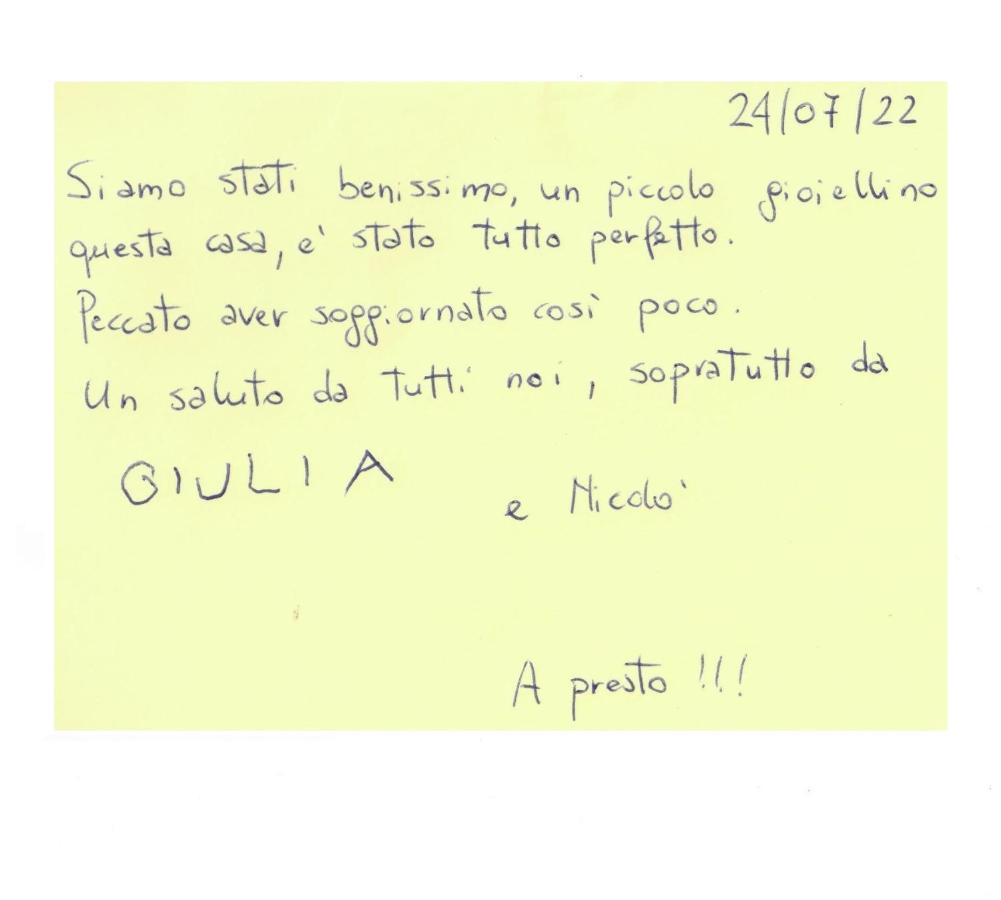 24/07/22
Siamo stati benissimo, un piccolo gioiellino
questa casa, e' stato tutto perfetto.
Peccato aver soggiornato così poco.
Un saluto da tutti noi, sopratutto da
GIULIA e Nicolo'
A presto !!!